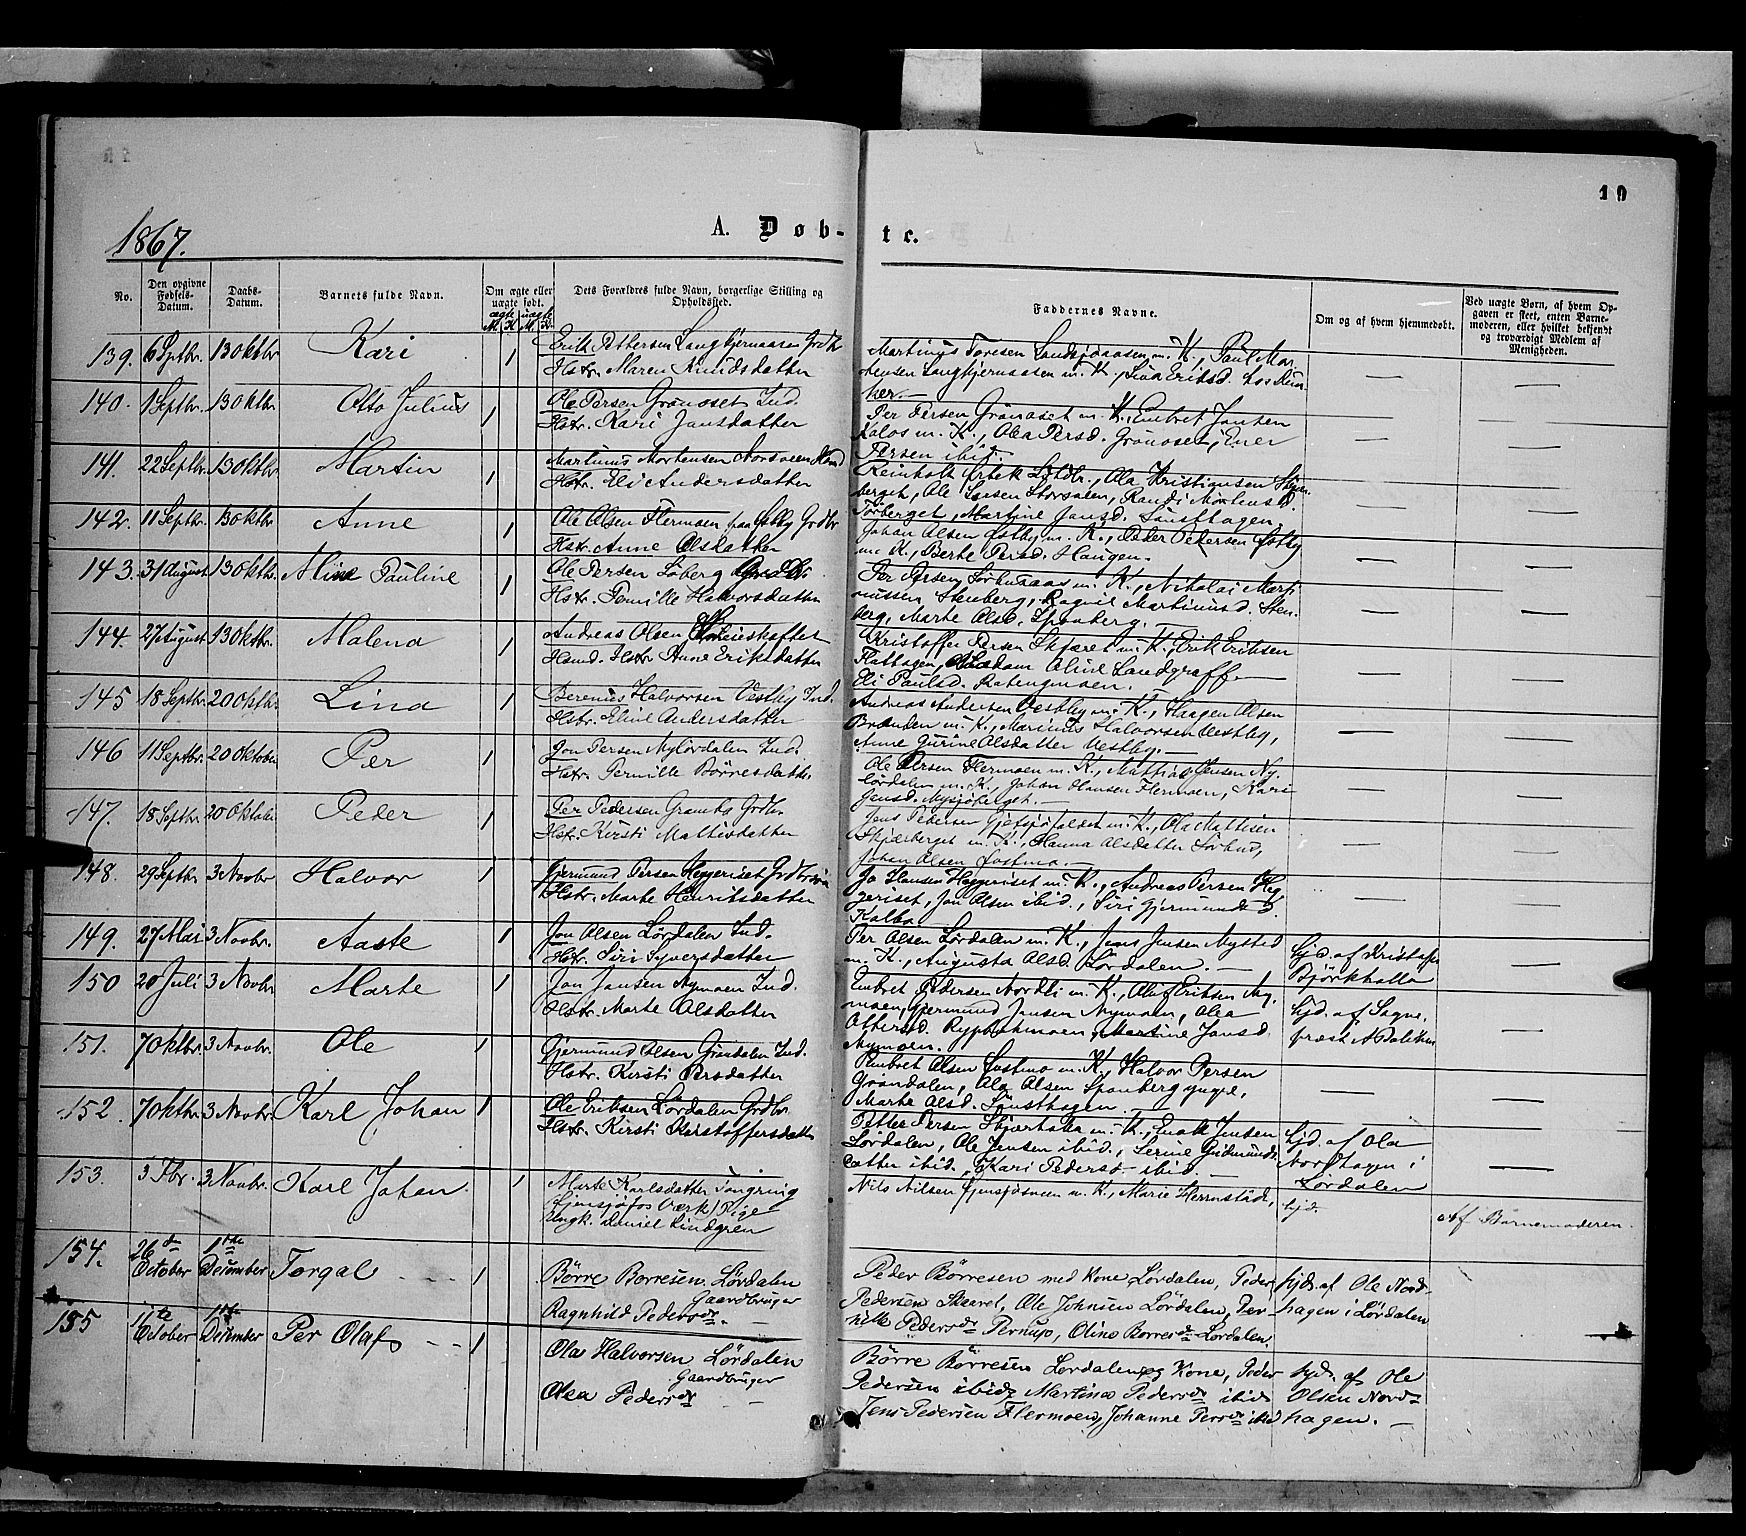 10
1867.
A. Døb- te.
No.
Den opgivne Fødsels-Datum.
Daabs-Datum.
Barnets fulde Navn.
Om ægte eller uægte født.
ægte uægte
M. K. M. K.
Dets Forældres fulde Navn, borgerlige Stilling og Opholdssted.
Faddernes Navne.
Om og af hvem hjemmedøbt.
Ved uægte Børn, af hvem Opgaven er skeet, enten Barnemoderen, eller hvilket bekjendt og troværdigt Medlem af Menigheden.
139. 6 Septbr. 13 Oktbr Kari 1 Erik Pettersen Langkjernaasen Grdbr
Hstr. Maren Knudsdatter
Martinus Toresen Landsjøaasen m. K., Paul Mor
tensen Langkjernaasen m. K., Lina Eriksd.
140. 1 Septbr. 13 Oktbr Otto Julius 1 Ole Persen Grønoset Ind.
Hstr. Kari Jansdatter
Per Persen Grønoset m. K., Embret Jansen
Kolos m. K., Olea Persd. Grønoset, Ener
Persen ibid.
141. 22 Septbr. 13 Oktbr Martin 1 Martinus Mortensen Nordveen Hsmd
Hstr. Eli Andersdatter
Reinholt Ørbek Lgdbr., Ola Kristiansen
berget, Ole Larsen Storsalen, Randi Mortensd.
Torberget, Martine Jansd. Lunsthagen.
142. 11 Septbr. 13 Oktbr Anne 1 Ole Olsen Flermoen paa Østby Grdbr
Hstr. Anne Olsdatter
Johan Olsen Østby m. K., Peder Pedersen Østby
m. K., Berte Persd. Haugen.
143. 31 August 13 Oktbr. Mine Pauline 1 Ole Persen Løberg
Hstr. Pernille Halvorsdatter
Per Persen Sørhusaas m. K., Nikolai Mart
nussen Stenberg, Ragnil Martinusd. Sten
berg, Marte Olsd. Spanberg.
144. 27 August 13 Oktbr. Malena 1 Andreas Olsen
Hsmd. Hstr Anne Eriksdatter
Kristoffer Persen Skjæret m. K., Erik Eriksen
Flathagen, Madam Aline Landgraff
Eli Paulsd. Rabengmoen.
145 18 Septbr. 20 Oktbr Lina 1 Berenius Halvorsen Vestby Ind.
Hstr. Eline Andersdatter
Andreas Andersen Vestby m. K., Haagen Olsen
Brænden m. K., Marinus Halvorsen Vestby,
Anne Gurine Olsdatter Vestby.
146 11 Septbr. 20 Oktober Per 1 Jon Persen Nylørdalen Ind.
Hstr. Pernille Børresdattr.
Ole Persen Flermoen m. K., Mattias Jensen Ny
lørdalen m. K., Johan Hansen Flermoen, Kari
Jensd. Nysjøberget.
147. 18 Septbr 20 Oktober Peder 1 Per Pedersen Gramby Grdbr.
Hstr. Kirsti Mattisdatter
Jens Pedersen Gjetsjøfaldet m. K., Ola Mattisen
Skjærberget m. K., Hanna Olsdatter Sørhus,
Johan Olsen Østmo.
148. 29 Septbr 3 Novbr Halvor 1 Gjermund Persen Heggeriset Grdbrsøn
Hstr. Marte Henriksdatter
Jo Hansen Heggeriset m. K., Andreas Persen Heg
geriset, Jon Olsen ibid., Siri Gjermundsd.
Kolbo
149. 27 Mai 3 Novbr. Aaste 1 Jon Olsen Lørdalen Ind.
Hstr. Siri Syversdatter
Per Olsen Lørdalen m. K., Jens Jensen Nysted
m. K., Augusta Olsd. Lørdalen.
hjd. af Kristofer
Bjørkholla
150 20 Juli 3 Novbr Marte 1 Jon Jansen Nymoen Ind.
Hstr. Marte Olsdatter
Embret Pedersen Nordli m. K., Oluf Eriksen Ny
moen, Gjermund Jonsen Nymoen, Olea
Ottersd. Martine Jansd.
Nymoen.
hjd. af Sogne
præst
151. 7 Oktbr. 3 Novbr. Ole 1 Gjermund Olsen Grøndalen Ind.
Hstr. Kirsti Persdatter
Embret Olsen Østmo m. K., Halvor Persen
Grøndalen, Ola Olsen Spanberg yngre,
Marte Olsd. Lunsthagen
152. 7 Oktbr. 3 Novbr. Karl Johan 1 Ole Eriksen Lørdalen Grdbr.
Hstr. Kirsti Kristoffersdatter
Petter Persen Skjærholla m. K., Enok Jensen
Lørdalen, Ole Jensen ibid., Serine Gudmunds
datter ibid., Kari Pedersd. ibid.
hjd. af Ola
Nordhagen i
Lørdalen
153. 3 Fbr. 3 Novbr. Karl Johan. 1 Marte Karlsdatter
Værk) Pige
Ungk. Daniel Lindgren
Nils Nilsen m. K., Marie Hernstad,
hjd.
Af Barnemoderen.
154. 26de October 1ste December Torgal 1 Børre Borresen Lørdalen
Gaardbruger
Ragnhild Pedersdr.
Peder Børresen med Kone Lørdalen, Peder
Pedersen Skaaret, Ole Johnsen Lørdalen, Per
nille Pedersdr Pernupo, Oline Borresdr Lørdalen.
hjd. af Ole Nord
hagen i Lørdalen
155 11te October 1ste December Per Olaf 1 Olaf Halvorsen Lørdalen
Gaardbruger
Olea Pedersdr
Børre Børresen Lørdalen og Kone, Peder
Pedersen ibid, Martinea Pedersdr ibid
Jens Pedersen Flermoen, Johanne Persdr ibid
hjd. af Ole
Olsen Nord-
hagen.